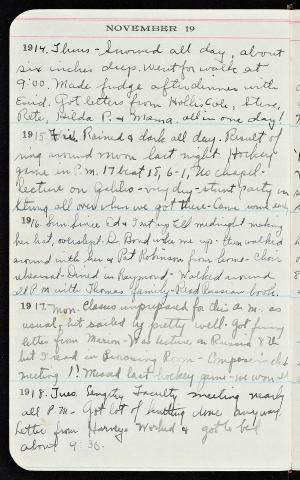 NOVEMBER 19
1914. Thurs - Snowed all day, about
six inches deep. Went for walk at
9:00. Made fudge after dinner with
Enid. Got letters from Hollis Cole, Steve,
Pete, Hilda P. & Mama. all in one day!
1915 Fri. Rained & dark all day. Result of
ring around moon last night. Hockey
game in P.M. 17 beat 18, 6-1, No chapel.
Lecture on Galileo - very dry - stunt party in
all over when we got there. Came
1916. Sun. Since Ed & I sat up till midnight making
her hat, overslept. D. Bond woke me up - then walked
around with her & Pat Robinson from home - Choir
rehearsal - Dined in Raymond - Walked around
all P.M. with Thomas family - Read Russian book.
1917. Mon. Classes unprepared for this A.M. as
usual, but sailed by pretty well. Got funny
letter from Marion - Was lecture on Russia 8th
but I read in Browsing Room - Composition club
meeting!! Missed last hockey game - we won it
1918. Tues. Lengthy Faculty meeting nearly
all P.M. Got lot of knitting done anyway
Letter from Harveys Worked & got to bed
about 9:30.